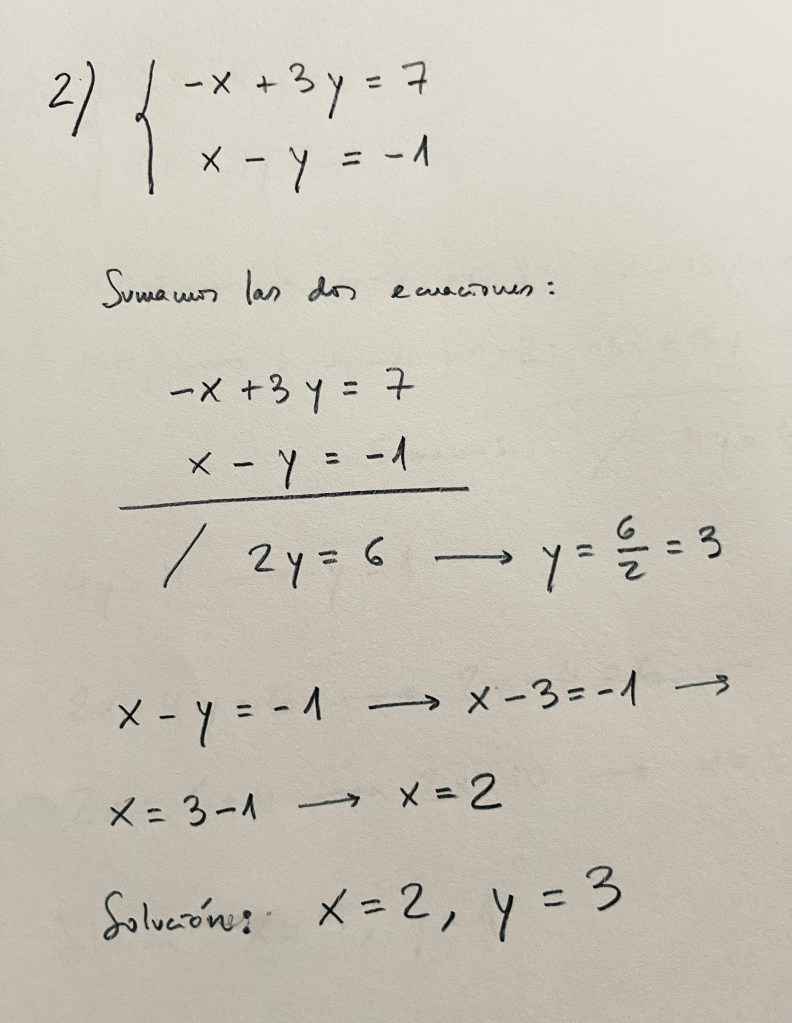 2) { -x + 3y = 7
x - y = -1
Sumamos las dos ecuaciones:
-x + 3y = 7
x - y = -1
/ 2y = 6 ⟶ y = 6/2 = 3
x - y = -1 ⟶ x - 3 = -1 ⟶
x = 3 - 1 ⟶ x = 2
Solución: x = 2, y = 3